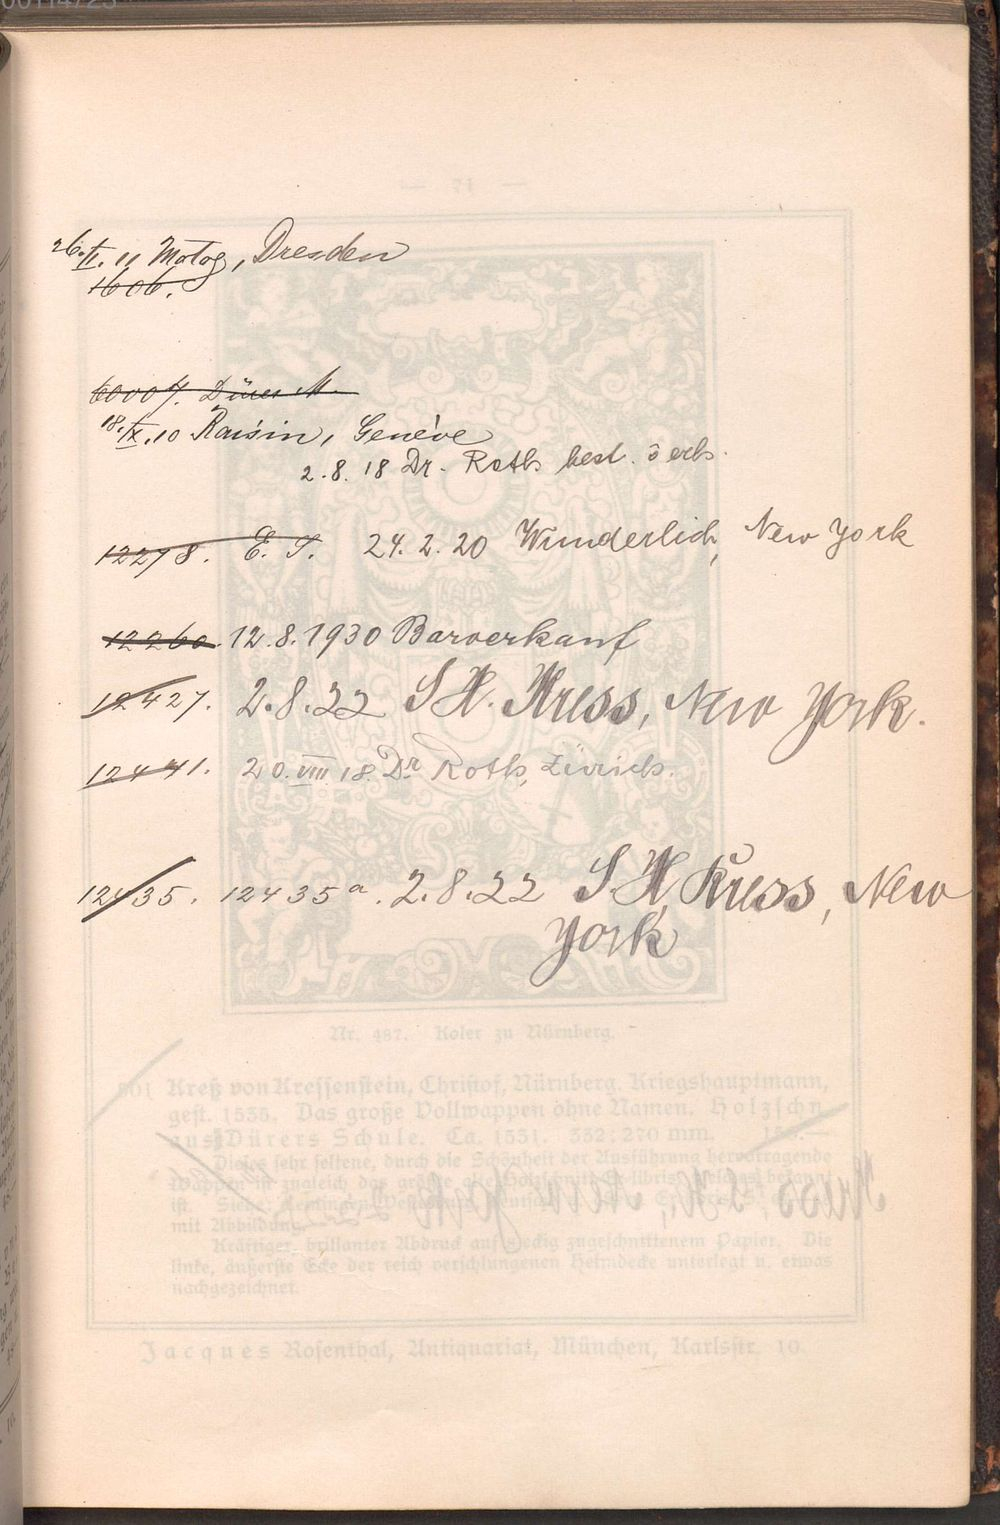 26. II. 11 Motog, Dresden
1606.
18. IX. 10 Raisin, Genève
2. 8. 18 Dr. Roth best. 3 erh.
12278. E. S. 24. 2. 20 Wunderlich, New York
12260. 12. 8. 1930 Barverkauf
12427. 2. 8. 22 S H. Kress, New York.
12441. 20. VIII 18. Dr Roth, Zürich.
12435. 12435a. 2. 8. 22 S. H. Kress, New
York
— 71 —
Nr. 487. Koler zu Nürnberg.
501 Kreß von Kressenstein, Christof, Nürnberg. Kriegshauptmann,
gest. 1535. Das große Vollwappen ohne Namen. Holzschn.
aus Dürers Schule. Ca. 1531. 352:270 mm.
Dieses sehr seltene, durch die Schönheit der Ausführung hervorragende
mit Abbildung.
Kräftiger, brillanter Abdruck auf zugeschnittenem Papier. Die
linke, äußerste Ecke der reich verschlungenen Helmdecke unterlegt u. etwas
nachgezeichnet.
Jacques Rosenthal, Antiquariat, München, Karlstr. 10.